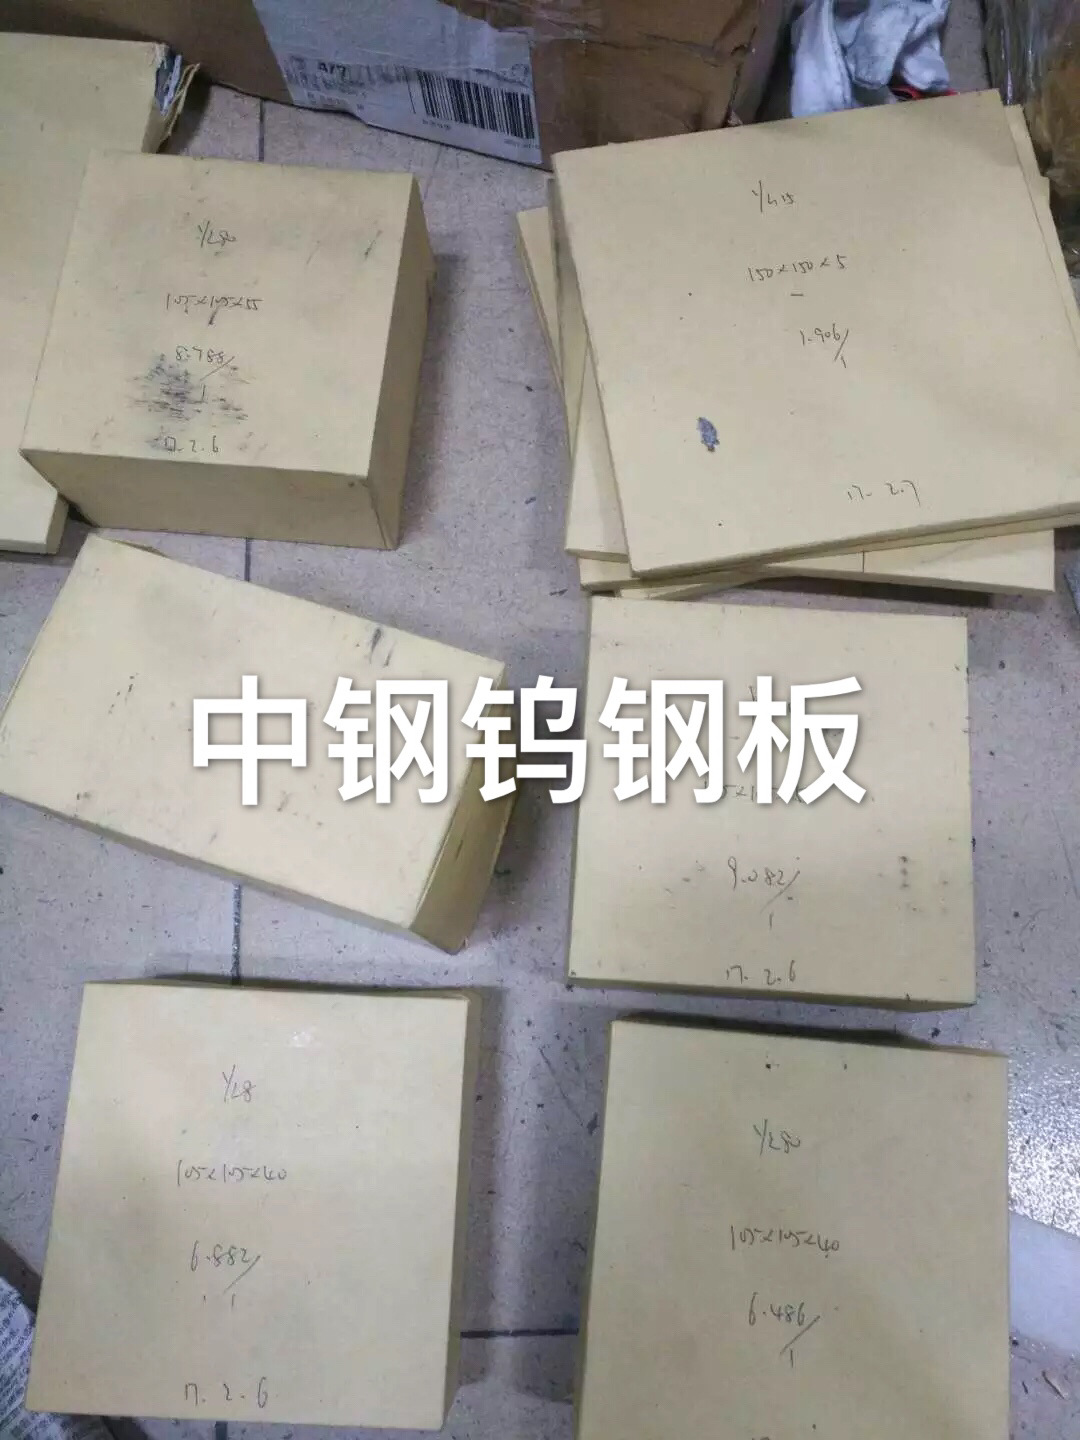 4/7
YL50
105×105×55
8.788/1
17.2.6
YL15
150×150×5
1.506/1
17.2.7
中钢钨钢板
9.082/1
17.2.6
YL8
105×105×40
6.882/1
17.2.6
YL50
105×105×40
6.486/1